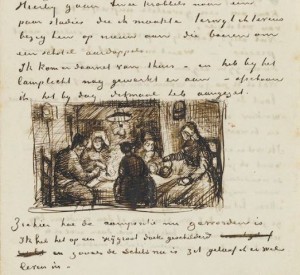 Hierbij gaan twee krabbels naar een
paar studies die ik maakte terwijl ik tevens
bezig ben op nieuw aan die boeren om
een schotel aardappels.
Ik kom er daarnet van thuis – en heb bij het
lamplicht nog gewerkt er aan – ofschoon
ik het bij dag ditmaal heb aangezet.
Ziehier hoe de compositie nu geworden is.
Ik heb het op een vrij groot doek geschilderd
en zooals de schets nu is zit geloof ik er wel
leven in –